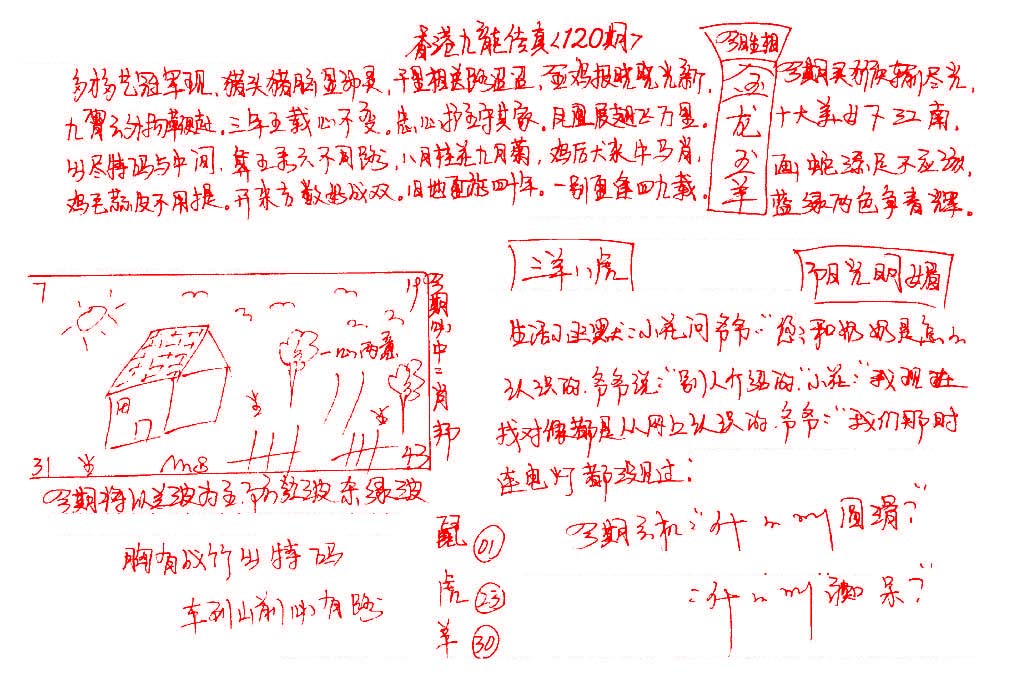 香港九龙传真<120期>
多才多艺冠军现,猪头猪脑显神灵,千里相关路迢迢,金鸡报晓晓光新,
九霄云外扬鞭进.三年五载心不变.忠心护主守家.凤凰展翅飞万里.
出尽特码与中间,八月桂花九月菊,鸡后大家牛马肖,
鸡毛蒜皮不用提.开来方数成双.旧地重游四十年.一别重逢四九载.
今期生相
金龙玉羊
今期买尽光,
十大美女下江南,
画蛇添足不应该,
蓝绿两色争春辉。
7
19
一心两意
31
M8
43
今期必中二肖邦
今期特以蓝波为主防红波杀绿波
三羊八虎
阳光明媚
生活小幽默:小花问爷爷:"您和奶奶是怎么
认识的.爷爷说:"别人介绍的"小花:"我现在
找对像都是从网上认识的.爷爷:"我们那时
连电灯都没见过:
今期玄机"什么叫圆滑?"
:"什么"叫"呆?"
胸有成竹出特码
车到山前必有路
鼠 01
虎 23
羊 30